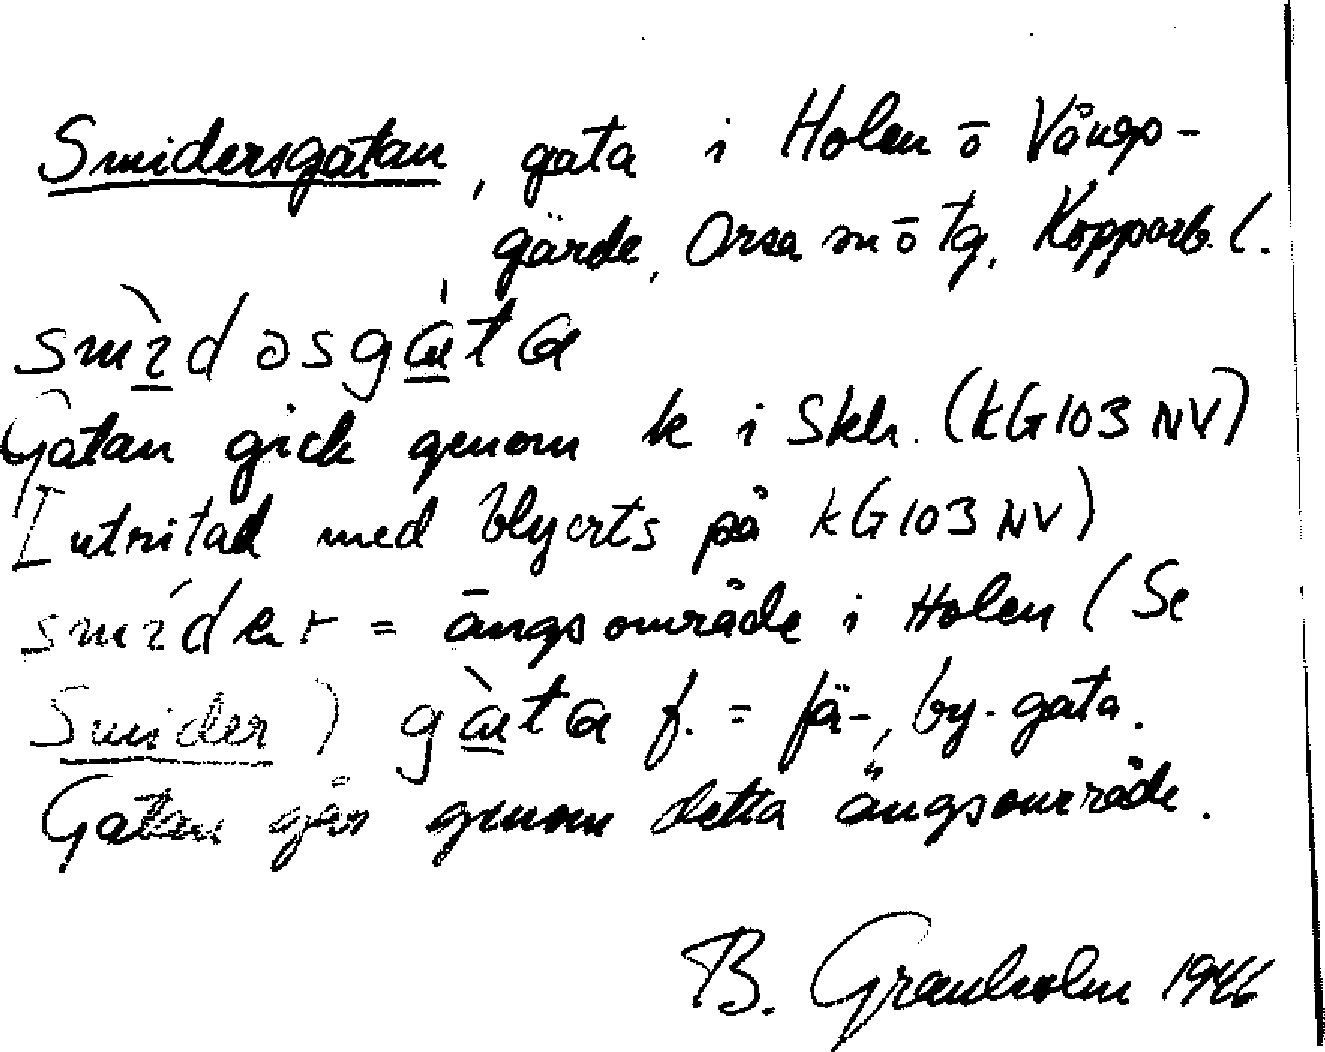 Smidersgatan, gata i Holen ō Vångs-
gärde, Orsa sn ō tg. Kopparb. l.
smì̱dəsgà̱ta
Gatan gick genom k i Skln. (KG103 NV)
Iutritad med blyerts på KG103 NV)
smíder = ängsområde i Holen (Se
Smider) gà̱ta f. = fä-, by-gata.
Gatan går genom detta ängsområde.
B. Granholm 1966